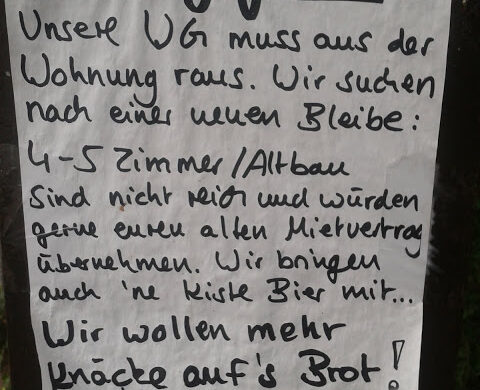 Unsere WG muss aus der
Wohnung raus. Wir suchen
nach einer neuen Bleibe:
4-5 Zimmer/Altbau
Sind nicht reich und würden
gerne euren alten Mietvertrag
übernehmen. Wir bringen
auch 'ne Kiste Bier mit...
Wir wollen mehr
Knäcke auf's Brot!